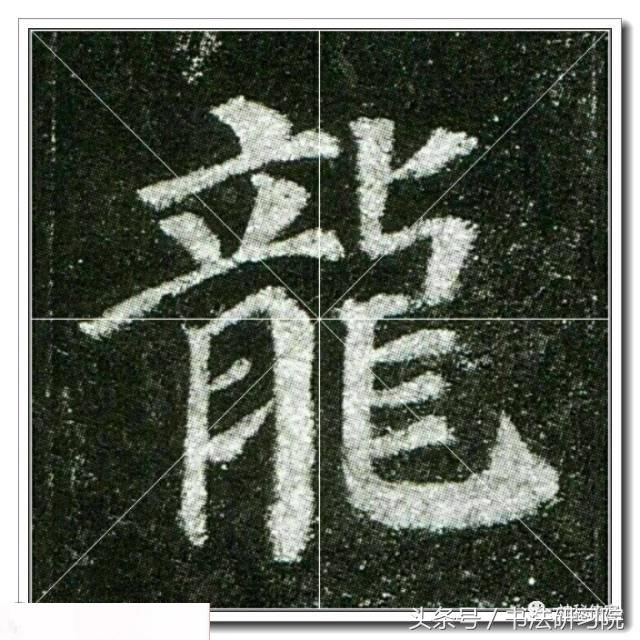 龍
头条号 / 书法研习院